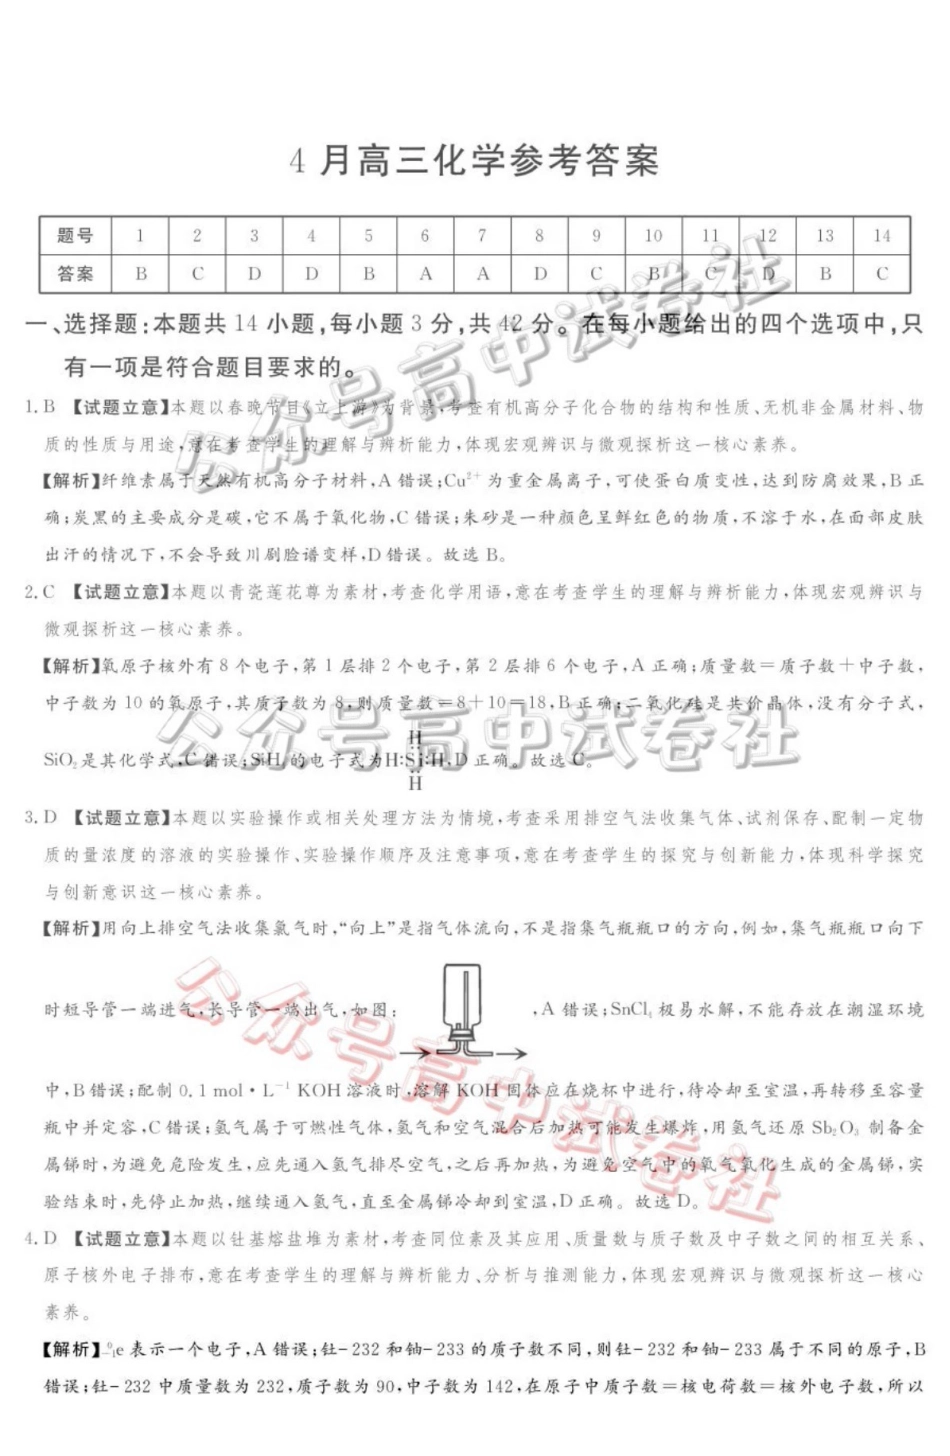 4 月高三化学参考答案
题号 1 2 3 4 5 6 7 8 9 10 11 12 13 14
答案 B C D D B A A D C B C D B C
一、选择题:本题共 14 小题,每小题 3 分,共 42 分。在每小题给出的四个选项中,只
有一项是符合题目要求的。
1. B 【试题立意】本题以春晚节目《立上游》为背景,考查有机高分子化合物的结构和性质、无机非金属材料、物
质的性质与用途,意在考查学生的理解与辨析能力,体现宏观辨识与微观探析这一核心素养。
【解析】纤维素属于天然有机高分子材料,A 错误;Cu²⁺ 为重金属离子,可使蛋白质变性,达到防腐效果,B 正
确;炭黑的主要成分是碳,它不属于氧化物,C 错误;朱砂是一种颜色呈鲜红色的物质,不溶于水,在面部皮肤
出汗的情况下,不会导致川剧脸谱变样,D 错误。故选 B。
2. C 【试题立意】本题以青瓷莲花尊为素材,考查化学用语,意在考查学生的理解与辨析能力,体现宏观辨识与
微观探析这一核心素养。
【解析】氧原子核外有 8 个电子,第 1 层排 2 个电子,第 2 层排 6 个电子,A 正确;质量数=质子数+中子数,
中子数为 10 的氧原子,其质子数为 8,则质量数=8+10=18,B 正确;二氧化硅是共价晶体,没有分子式,
H
SiO₂是其化学式,C 错误;SiH₄的电子式为H:Si:H,D 正确。故选 C。
H
3. D 【试题立意】本题以实验操作或相关处理方法为情境,考查采用排空气法收集气体、试剂保存、配制一定物
质的量浓度的溶液的实验操作、实验操作顺序及注意事项,意在考查学生的探究与创新能力,体现科学探究
与创新意识这一核心素养。
【解析】用向上排空气法收集氯气时,“向上”是指气体流向,不是指集气瓶瓶口的方向,例如,集气瓶瓶口向下
时短导管一端进气,长导管一端出气,如图: ,A 错误;SnCl₄ 极易水解,不能存放在潮湿环境
中,B 错误;配制 0.1 mol·L⁻¹ KOH 溶液时,溶解 KOH 固体应在烧杯中进行,待冷却至室温,再转移至容量
瓶中并定容,C 错误;氢气属于可燃性气体,氢气和空气混合后加热可能发生爆炸,用氢气还原 Sb₂O₃ 制备金
属锑时,为避免危险发生,应先通入氢气排尽空气,之后再加热,为避免空气中的氧气氧化生成的金属锑,实
验结束时,先停止加热,继续通入氢气,直至金属锑冷却到室温,D 正确。故选 D。
4. D 【试题立意】本题以钍基熔盐堆为素材,考查同位素及其应用、质量数与质子数及中子数之间的相互关系、
原子核外电子排布,意在考查学生的理解与辨析能力、分析与推测能力,体现宏观辨识与微观探析这一核心
素养。
【解析】⁰₋₁e 表示一个电子,A 错误;钍-232 和铀-233 的质子数不同,则钍-232 和铀-233 属于不同的原子,B
错误;钍-232 中质量数为 232,质子数为 90,中子数为 142,在原子中质子数=核电荷数=核外电子数,所以
公众号高中试卷社
公众号高中试卷社
公众号高中试卷社